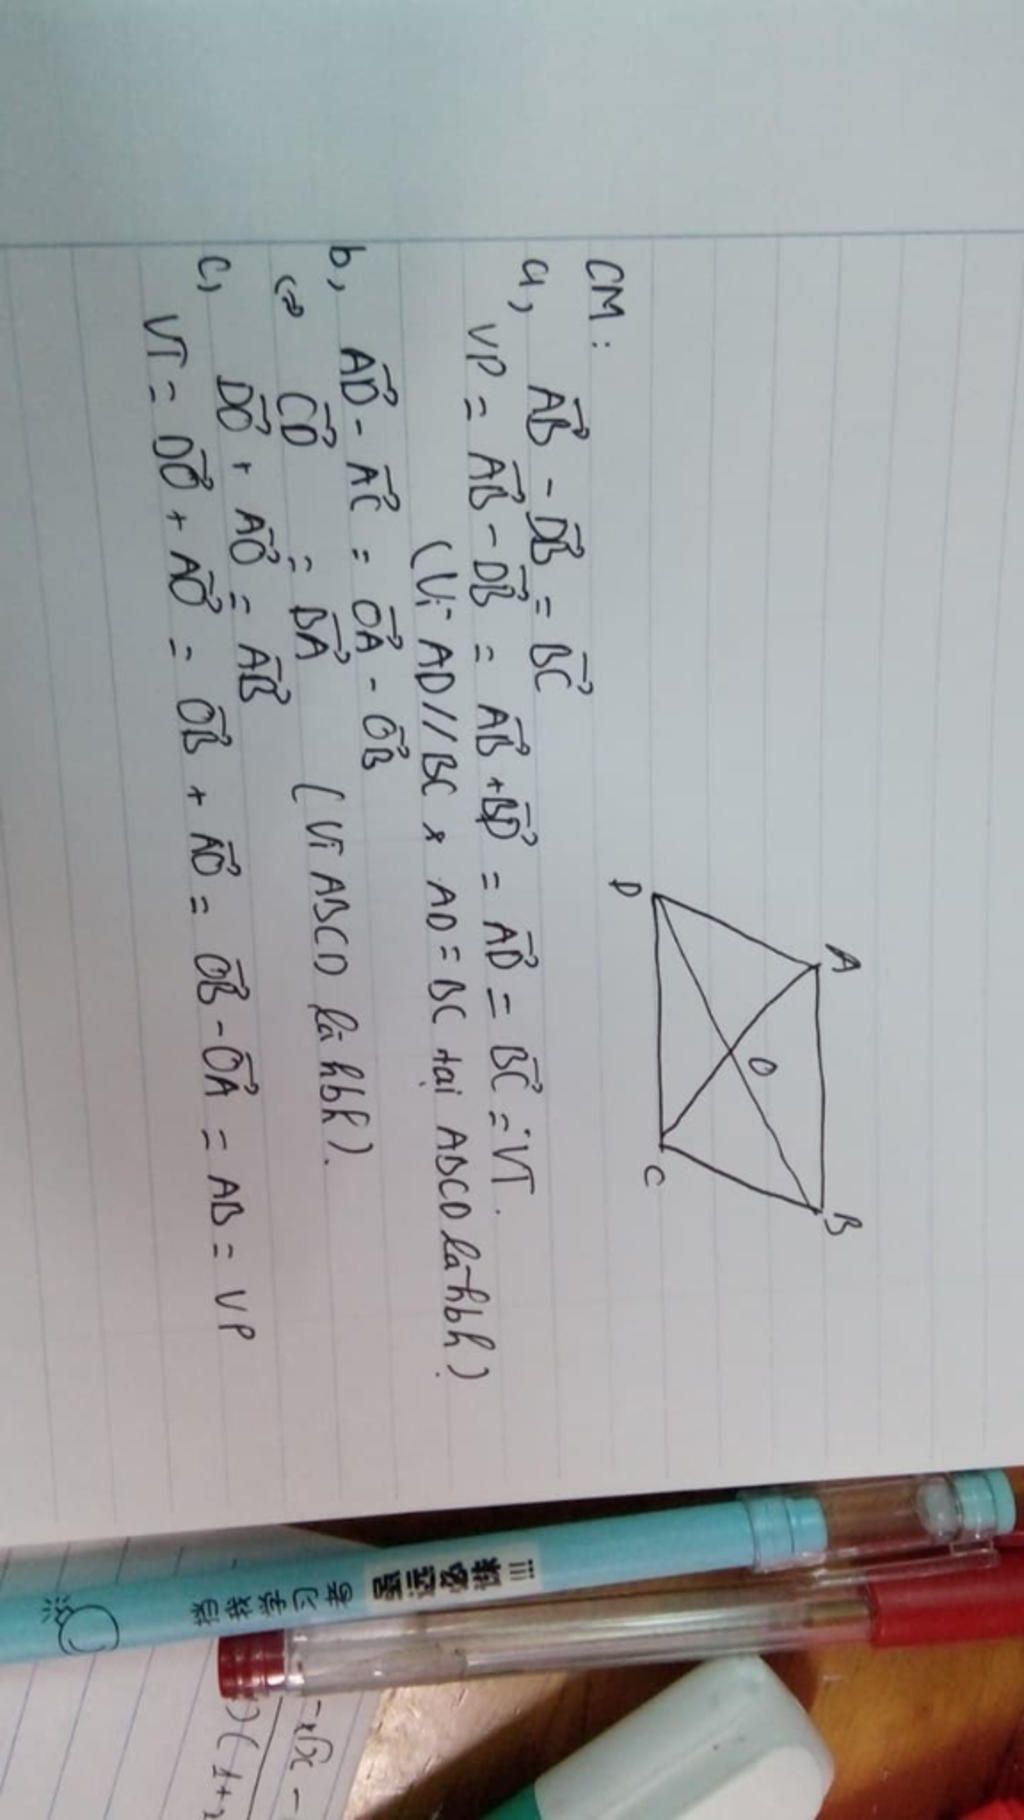 CM:
a, A͞B⃗ - DB⃗ = BC⃗
VP = AB⃗ - DB⃗ = AB⃗ + BD⃗ = AD⃗ = BC⃗ = VT.
(Vì AD//BC * AD = BC tại ABCD là hbh)
b, AD⃗ - AC⃗ = OA⃗ - OB⃗
⇔ CD⃗ = BA⃗ (Vì ABCD là hbh).
c, DO⃗ + AO⃗ = AB⃗
VT = DO⃗ + AO⃗ = OB⃗ + AO⃗ = OB⃗ - OA⃗ = AB = VP
A
B
O
D
C